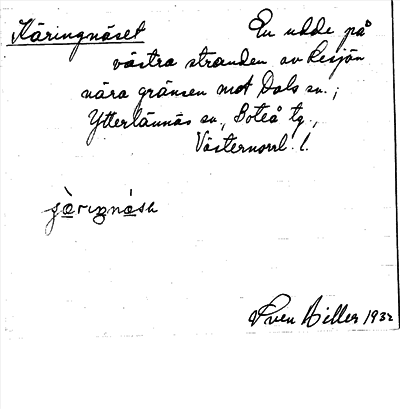 Käringnäset En udde på
västra stranden av Resjön
nära gränsen mot Dals sn.;
Ytterlännäs sn., Boteå tg.,
Västernorrl. l.
Sven Hiller 1932